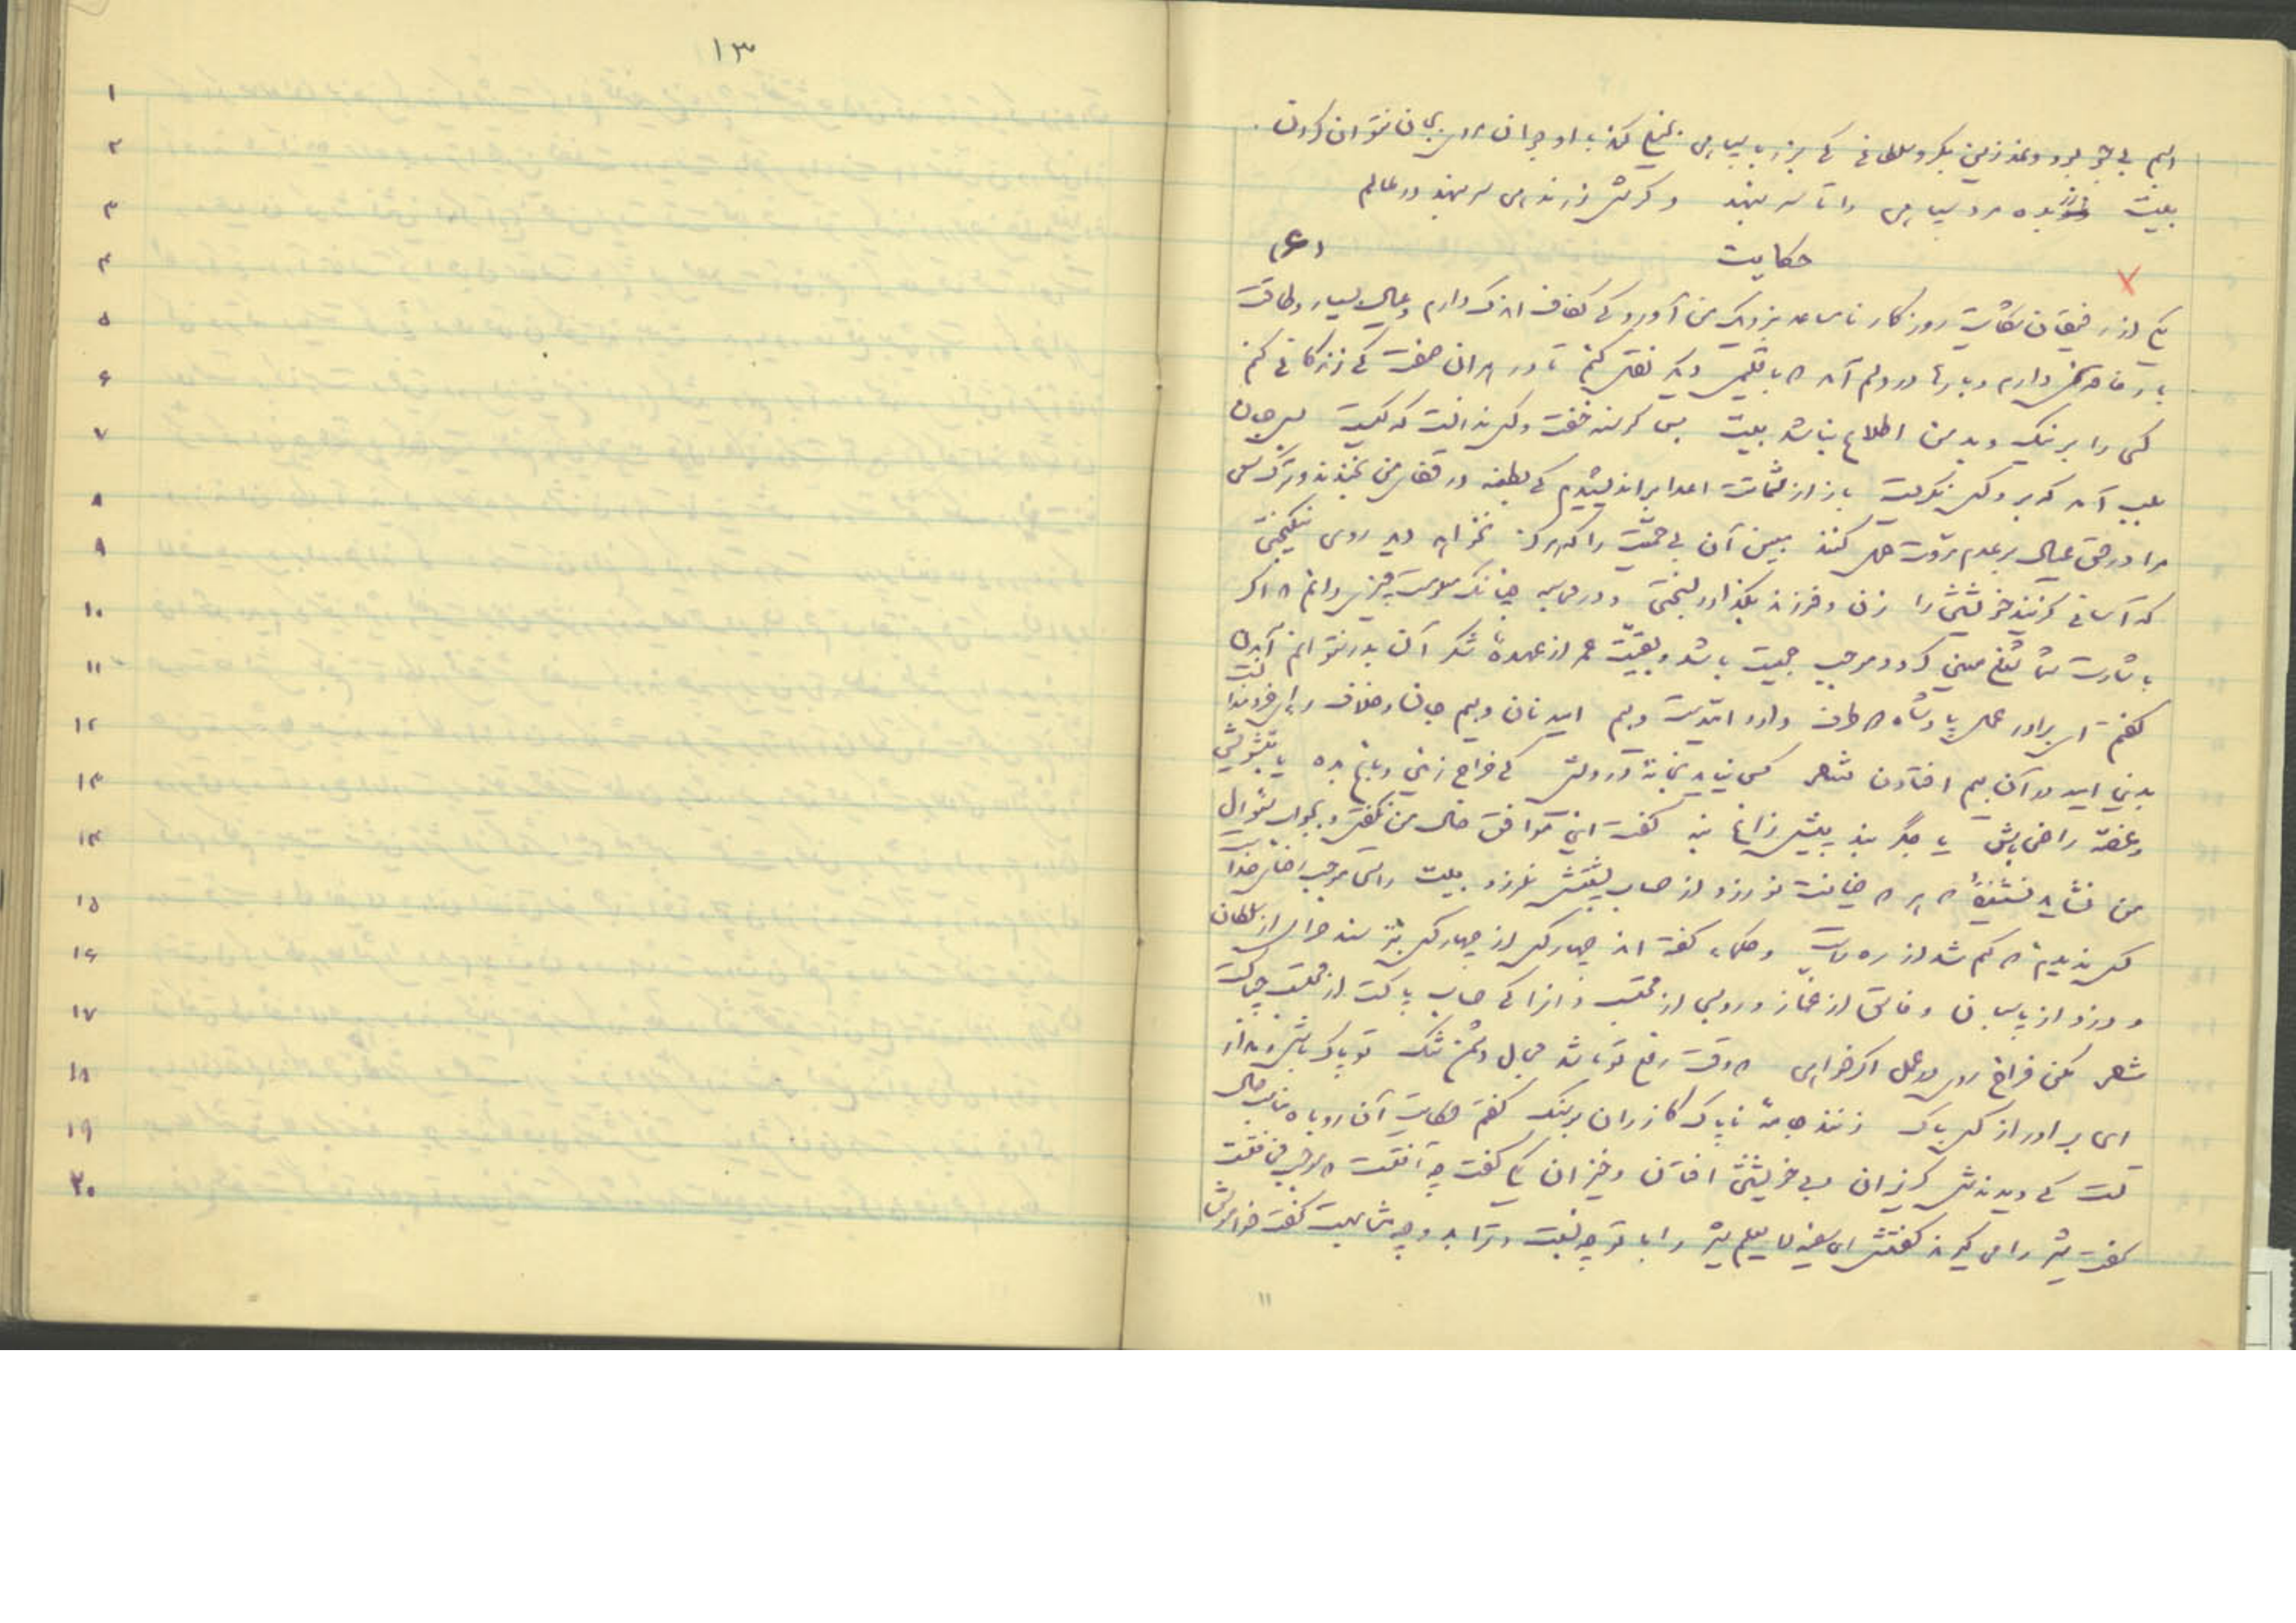 اسبم بی جو بود و نمد زین بگرو سلطانی کی بزر با سپاهی بخیلی کند با او بجوانمردی نتوان کردن.
بیت بده مرد سپاهی را تا سر بنهد و گرش زر ندهی سر بنهد در عالم
حکایت (۶)
یکی از رفیقان شکایت روزگار نامساعد بنزدیک من آورد کی کفاف اندک دارم و عیال بسیار و طاقت
بار فاقه نمی‌دارم و بارها در دلم آمد که باقلیمی دیگر نقل کنم تا در هر آن صفت کی زندگانی کنم
کسی را بر نیک و بد من اطلاع نباشد بیت بس گرسنه خفت و کس ندانست که کیست بس جان
بلب آمد که برو کس نگریست باز از شماتت اعدا براندیشم کی بطعنه در قفای من بخندند و ترک سعی
مرا در حق عیال بر عدم مروت حمل کنند ببین آن بی حمیت را که هرگز نخواهد دید روی نیکبختی
که آسانی گزیند خویشتن را زن و فرزند بگذارد بسختی و در محاسبه چنانک معلومست چیزی دانم اگر
باشارت شما شغلی معین گردد موجب جمعیت باشد و بقیت عمر از عهدهٔ شکر آن بدر نتوانم آمدن
گفتم ای برادر عمل پادشاه دو طرف دارد امیدست و بیم امید نان و بیم جان و خلاف رای خردمندانست
بدین امید در آن بیم افتادن شعر کس نیاید بخانهٔ درویش کی خراج زمین و باغ بده یا بتشویش
و غصه راضی باش یا جگر بند پیش زاغ بنه گفت این موافق حال من نگفتی و جواب سؤال
من نشاید نشنیدهٔ هر که خیانت نورزد از حساب پشتش نلرزد بیت راستی موجب رضای خداست
کس ندیدم که گم شد از ره راست و حکما گفته‌اند چهار کس از چهار کس بترسند حرامی از سلطان
و دزد از پاسبان و فاسق از غماز و روسپی از محتسب و انرا کی حساب پاکست از محاسب چه باکست
شعر مکن فراخ روی در عمل اگر خواهی که وقت رفع تو باشد مجال دشمن تنگ تو پاک باش و مدار
ای برادر از کس باک زنند جامهٔ ناپاک گازران بر سنگ گفتم حکایت آن روباه مناسب حال
تست کی دیدندش گریزان و بی خویشتن افتان و خیزان یکی گفت چه آفتست که موجب مخافتست
گفت شتر را می‌گیرند گفتش ای سفیه لایعلم شتر را با تو چه نسبت و ترا بدو چه مشابهت گفت خاموش
۱۱
۱۳
۱
۲
۳
۴
۵
۶
۷
۸
۹
۱۰
۱۱
۱۲
۱۳
۱۴
۱۵
۱۶
۱۷
۱۸
۱۹
۲۰